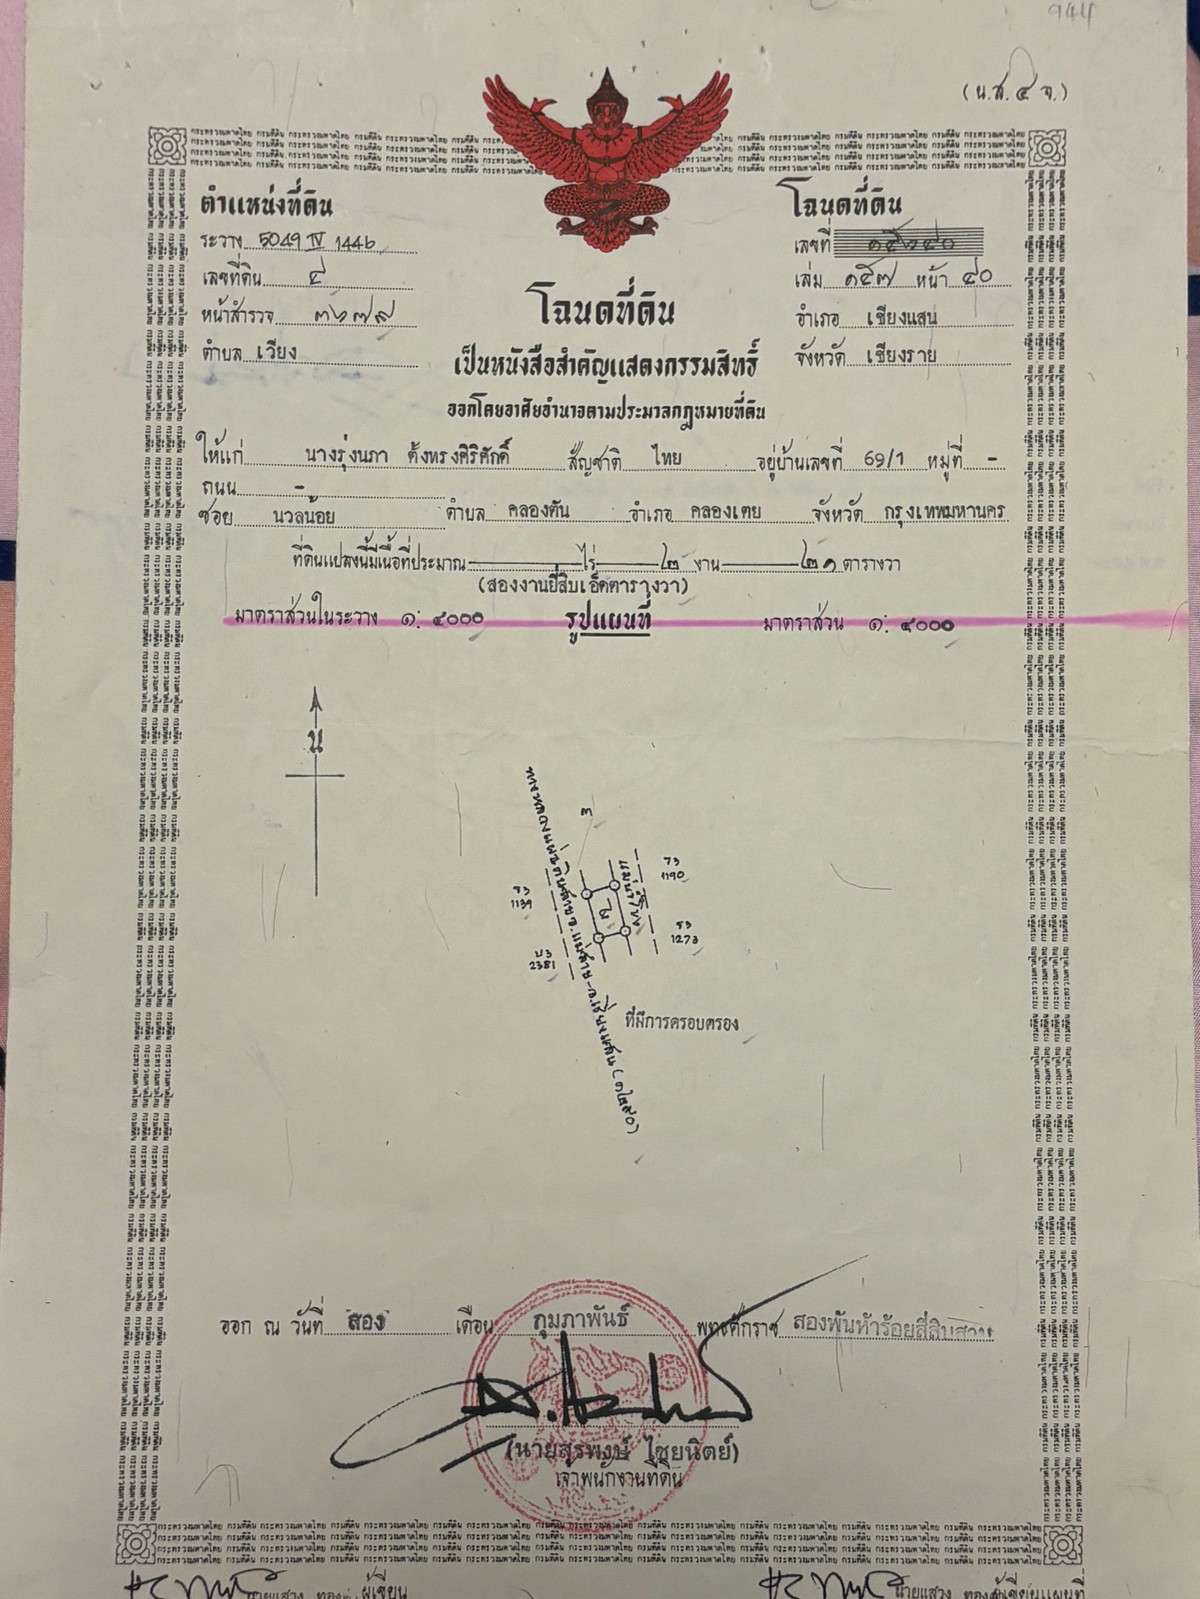 944
(น.ส.๔ จ.)
ตำแหน่งที่ดิน
ระวาง 5049 IV 1446
เลขที่ดิน ๔
หน้าสำรวจ ๓๖๗๙
ตำบล เวียง
โฉนดที่ดิน
เลขที่
เล่ม ๑๕๗ หน้า ๔๐
อำเภอ เชียงแสน
จังหวัด เชียงราย
โฉนดที่ดิน
เป็นหนังสือสำคัญแสดงกรรมสิทธิ์
ออกโดยอาศัยอำนาจตามประมวลกฎหมายที่ดิน
ให้แก่ นางรุ่งนภา ตั้งทรงศิริศักดิ์ สัญชาติ ไทย อยู่บ้านเลขที่ 69/1 หมู่ที่ -
ถนน -
ซอย นวลน้อย ตำบล คลองตัน อำเภอ คลองเตย จังหวัด กรุงเทพมหานคร
ที่ดินแปลงนี้มีเนื้อที่ประมาณ ไร่ ๒ งาน ๒๑ ตารางวา
(สองงานยี่สิบเอ็ดตารางวา)
มาตราส่วนในระวาง ๑:๔๐๐๐ รูปแผนที่ มาตราส่วน ๑:๔๐๐๐
น
๓
ร3
1139
บ3
2381
แม่น้ำโขง
ร3
1190
ร3
1273
ที่มีการครอบครอง
ออก ณ วันที่ สอง เดือน กุมภาพันธ์ พุทธศักราช สองพันห้าร้อยสี่สิบสาม
(นายสุรพงษ์ ไชยนิตย์)
เจ้าพนักงานที่ดิน
นายแสวง ผู้เขียน
นายแสวง ผู้เขียนแผนที่